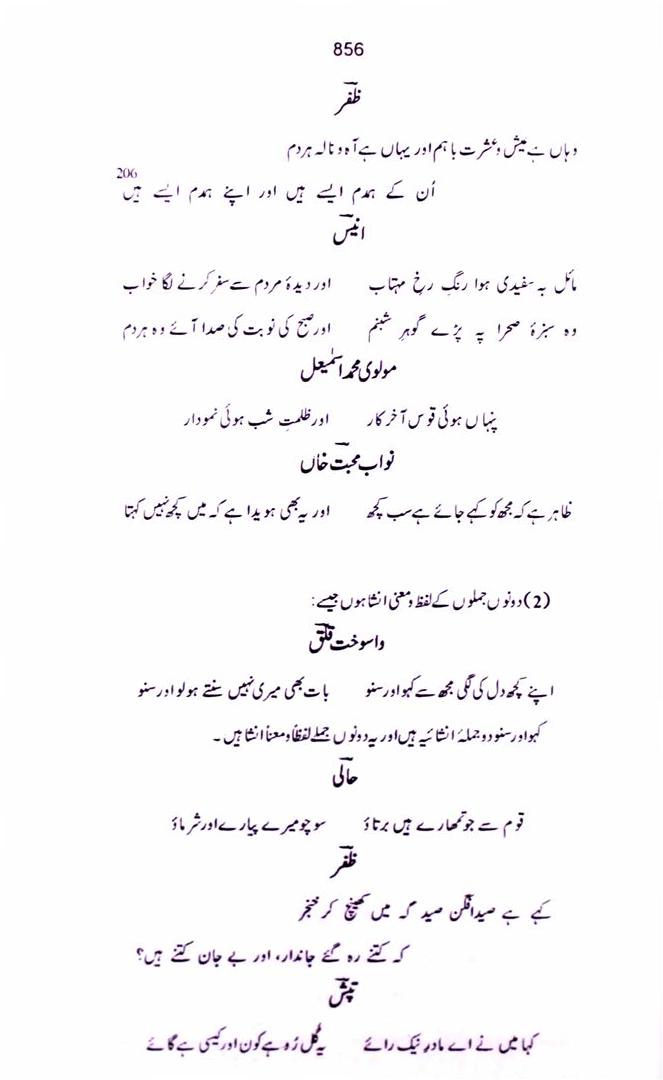 856
ظفر
وہاں ہے عیش وعشرت باہم اور یہاں ہے آہ ونالہ ہردم
اُن کے ہمدم ایسے ہیں اور اپنے ہمدم ایسے ہیں 206
انیس
مائل بہ سفیدی ہوا رنگِ رخِ مہتاب اور دیدۂ مردم سے سفر کرنے لگا خواب
وہ سبزۂ صحرا پہ پڑے گوہرِ شبنم اور صبح کی نوبت کی صدا آئے وہ ہردم
مولوی محمد اسمٰعیل
پنہاں ہوئی قوس آخرکار اور ظلمتِ شب ہوئی نمودار
نواب محبت خاں
ظاہر ہے کہ مجھ کو کہے جائے ہے سب کچھ اور یہ بھی ہویدا ہے کہ میں کچھ نہیں کہتا
(2) دونوں جملوں کے لفظ ومعنی انشا ہوں جیسے:
واسوخت قلق
اپنے کچھ دل کی لگی مجھ سے کہو اور سنو بات بھی میری نہیں سنتے ہو لو اور سنو
کہو اور سنو دو جملۂ انشائیہ ہیں اور یہ دونوں جملے لفظاً ومعناً انشا ہیں۔
حالی
قوم سے جو تمھارے ہیں برتاؤ سوچو میرے پیارے اور شرماؤ
ظفر
کہے ہے صیدافگن صید گہ میں کھینچ کر خنجر
کہ کتنے رہ گئے جاندار، اور بے جان کتنے ہیں؟
تپش
کہا میں نے اے مادرِ نیک رائے یہ گُل رُو ہے کون اور کیسی ہے گائے